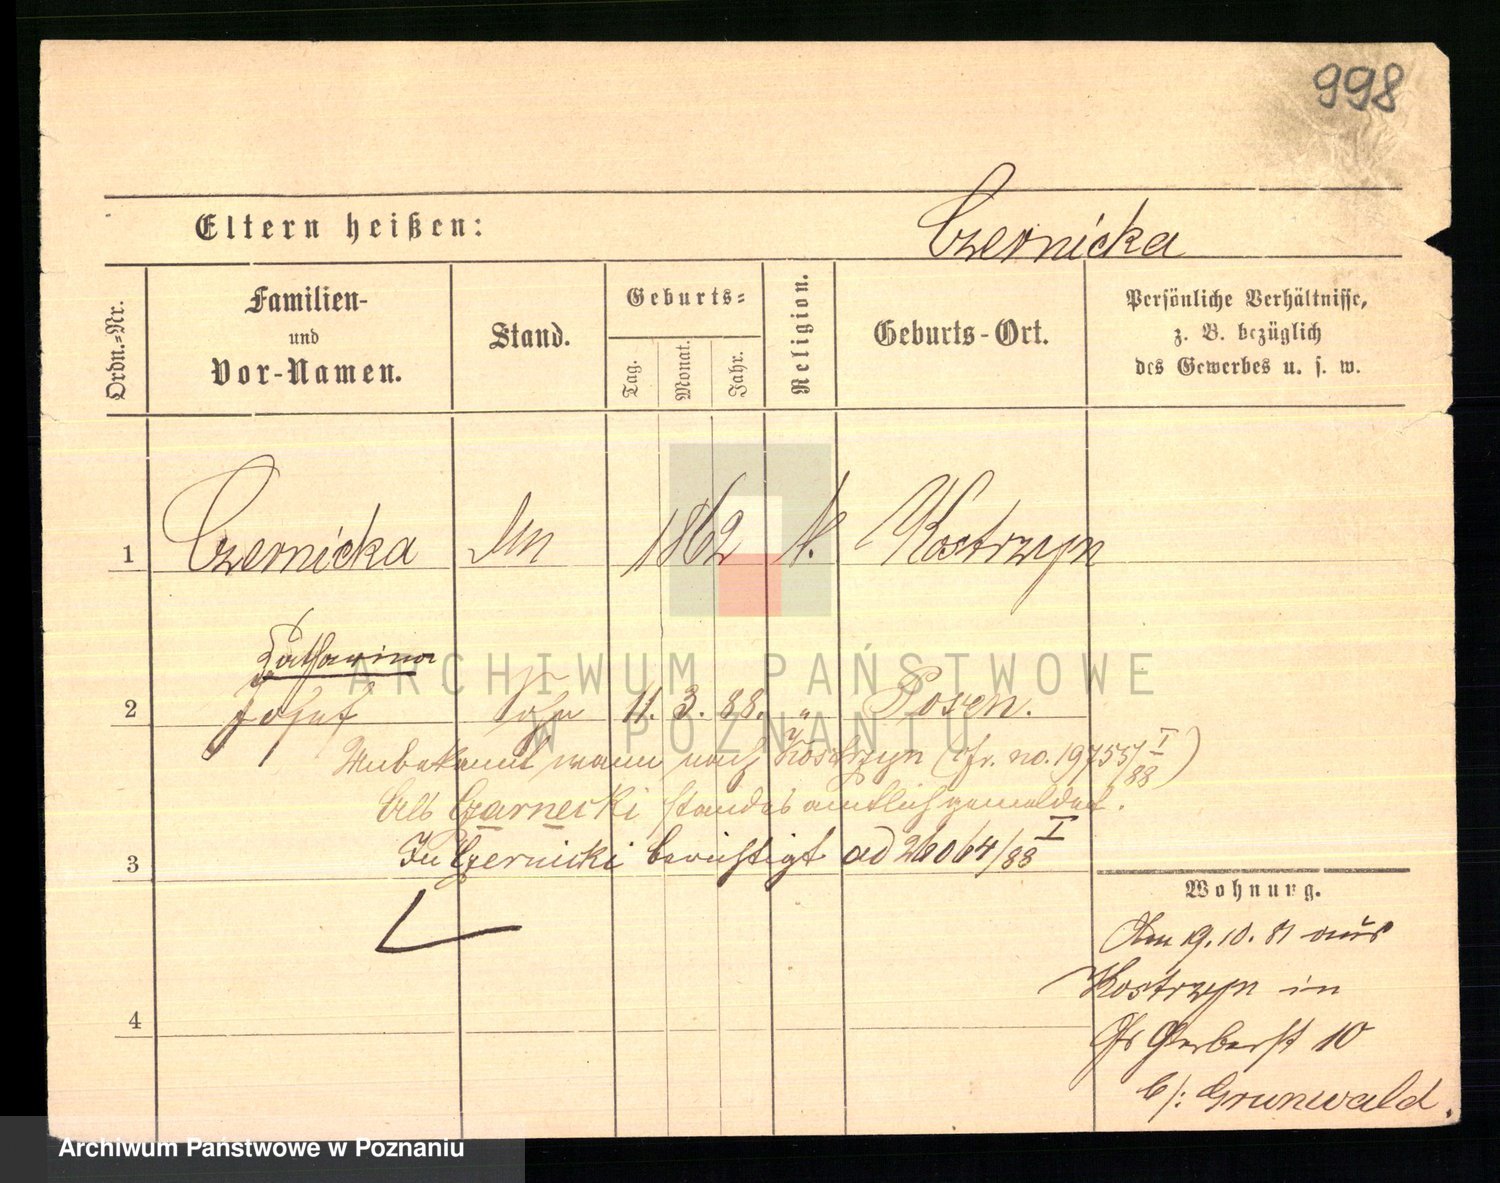 998
Eltern heißen: Czernicka
Ordn.-Nr.
Familien-
und
Vor-Namen.
Stand.
Geburts-
Tag.
Monat.
Jahr.
Religion.
Geburts-Ort.
Persönliche Verhältnisse,
z. B. bezüglich
des Gewerbes u. s. w.
1 Czernicka 1862 k. Kostrzyn
Catharina
2 Josef Sohn 11. 3. 88. " Posen.
Unbekannt wann nach Kostrzyn (fr. no. 19755/88 I)
Als Czarnecki standesamtlich gemeldet.
In Czernicki berichtigt ad 26064/88 I
3
Wohnung.
Am 19.10.81 aus
Kostrzyn in
Gr Gerberst 10
b/: Grunwald.
4
ARCHIWUM PAŃSTWOWE
W POZNANIU
Archiwum Państwowe w Poznaniu